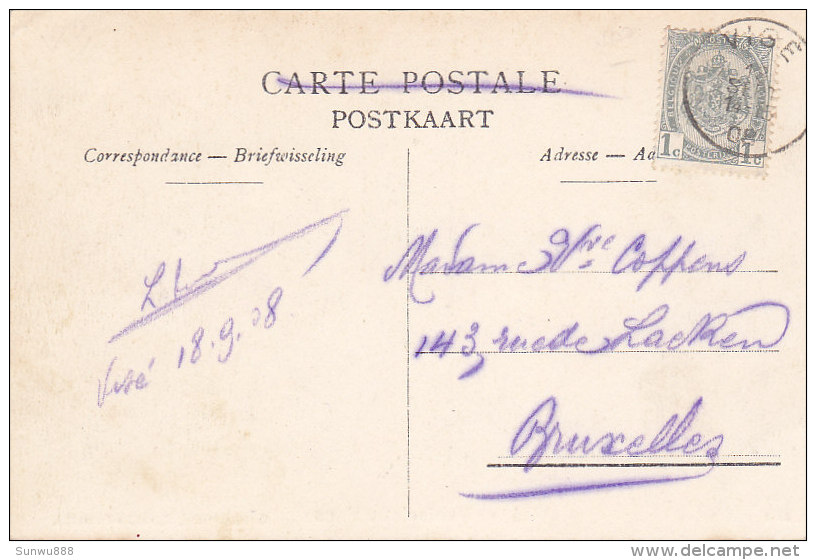 CARTE POSTALE
POSTKAART
Correspondance — Briefwisseling
Adresse — Aa
1c 1c
Visé 18.9.08
Madame Vve Coppens
143, rue de Laeken
Bruxelles
Sunwu888
delcampe.net